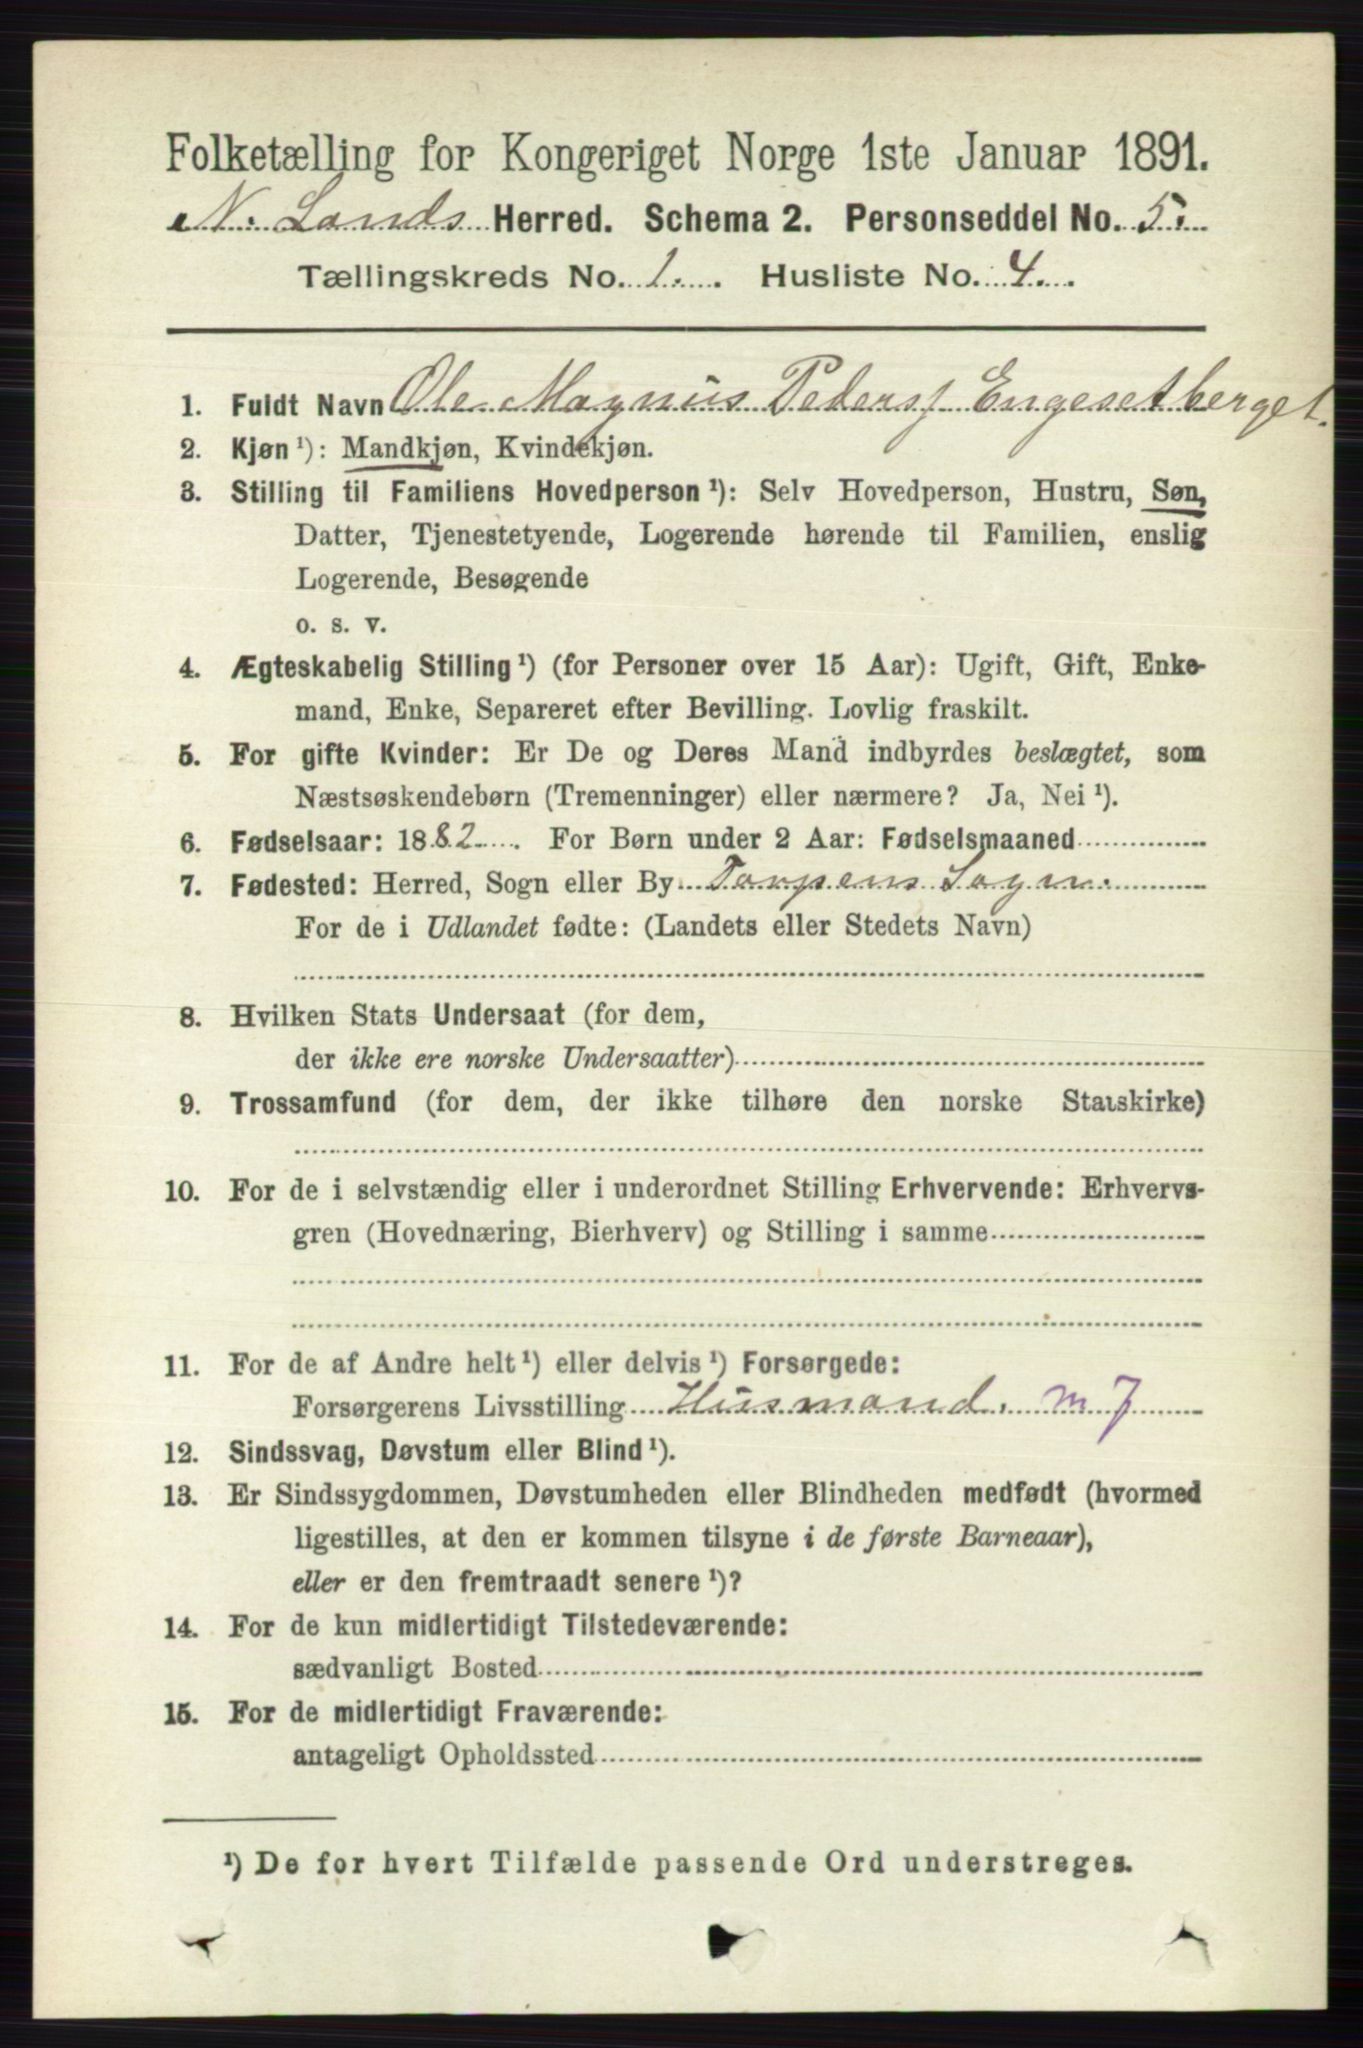 Folketælling for Kongeriget Norge 1ste Januar 1891.
N. Lands Herred. Schema 2. Personseddel No. 5.
Tællingskreds No. 1. Husliste No. 4.
1. Fuldt Navn Ole Magnus Pedersf Engesetberget.
2. Kjøn ¹): Mandkjøn, Kvindekjøn.
3. Stilling til Familiens Hovedperson ¹): Selv Hovedperson, Hustru, Søn,
Datter, Tjenestetyende, Logerende hørende til Familien, enslig
Logerende, Besøgende
o. s. v.
4. Ægteskabelig Stilling ¹) (for Personer over 15 Aar): Ugift, Gift, Enke-
mand, Enke, Separeret efter Bevilling. Lovlig fraskilt.
5. For gifte Kvinder: Er De og Deres Mand indbyrdes beslægtet, som
Næstsøskendebørn (Tremenninger) eller nærmere? Ja, Nei ¹).
6. Fødselsaar: 1882. For Børn under 2 Aar: Fødselsmaaned
7. Fødested: Herred, Sogn eller By Torpens Sogn.
For de i Udlandet fødte: (Landets eller Stedets Navn)
8. Hvilken Stats Undersaat (for dem,
der ikke ere norske Undersaatter)
9. Trossamfund (for dem, der ikke tilhøre den norske Statskirke)
10. For de i selvstændig eller i underordnet Stilling Erhvervende: Erhvervs-
gren (Hovednæring, Bierhverv) og Stilling i samme
11. For de af Andre helt ¹) eller delvis ¹) Forsørgede:
Forsørgerens Livsstilling Husmand. m J
12. Sindssvag, Døvstum eller Blind ¹).
13. Er Sindssygdommen, Døvstumheden eller Blindheden medfødt (hvormed
ligestilles, at den er kommen tilsyne i de første Barneaar),
eller er den fremtraadt senere ¹)?
14. For de kun midlertidigt Tilstedeværende:
sædvanligt Bosted
15. For de midlertidigt Fraværende:
antageligt Opholdssted
¹) De for hvert Tilfælde passende Ord understreges.